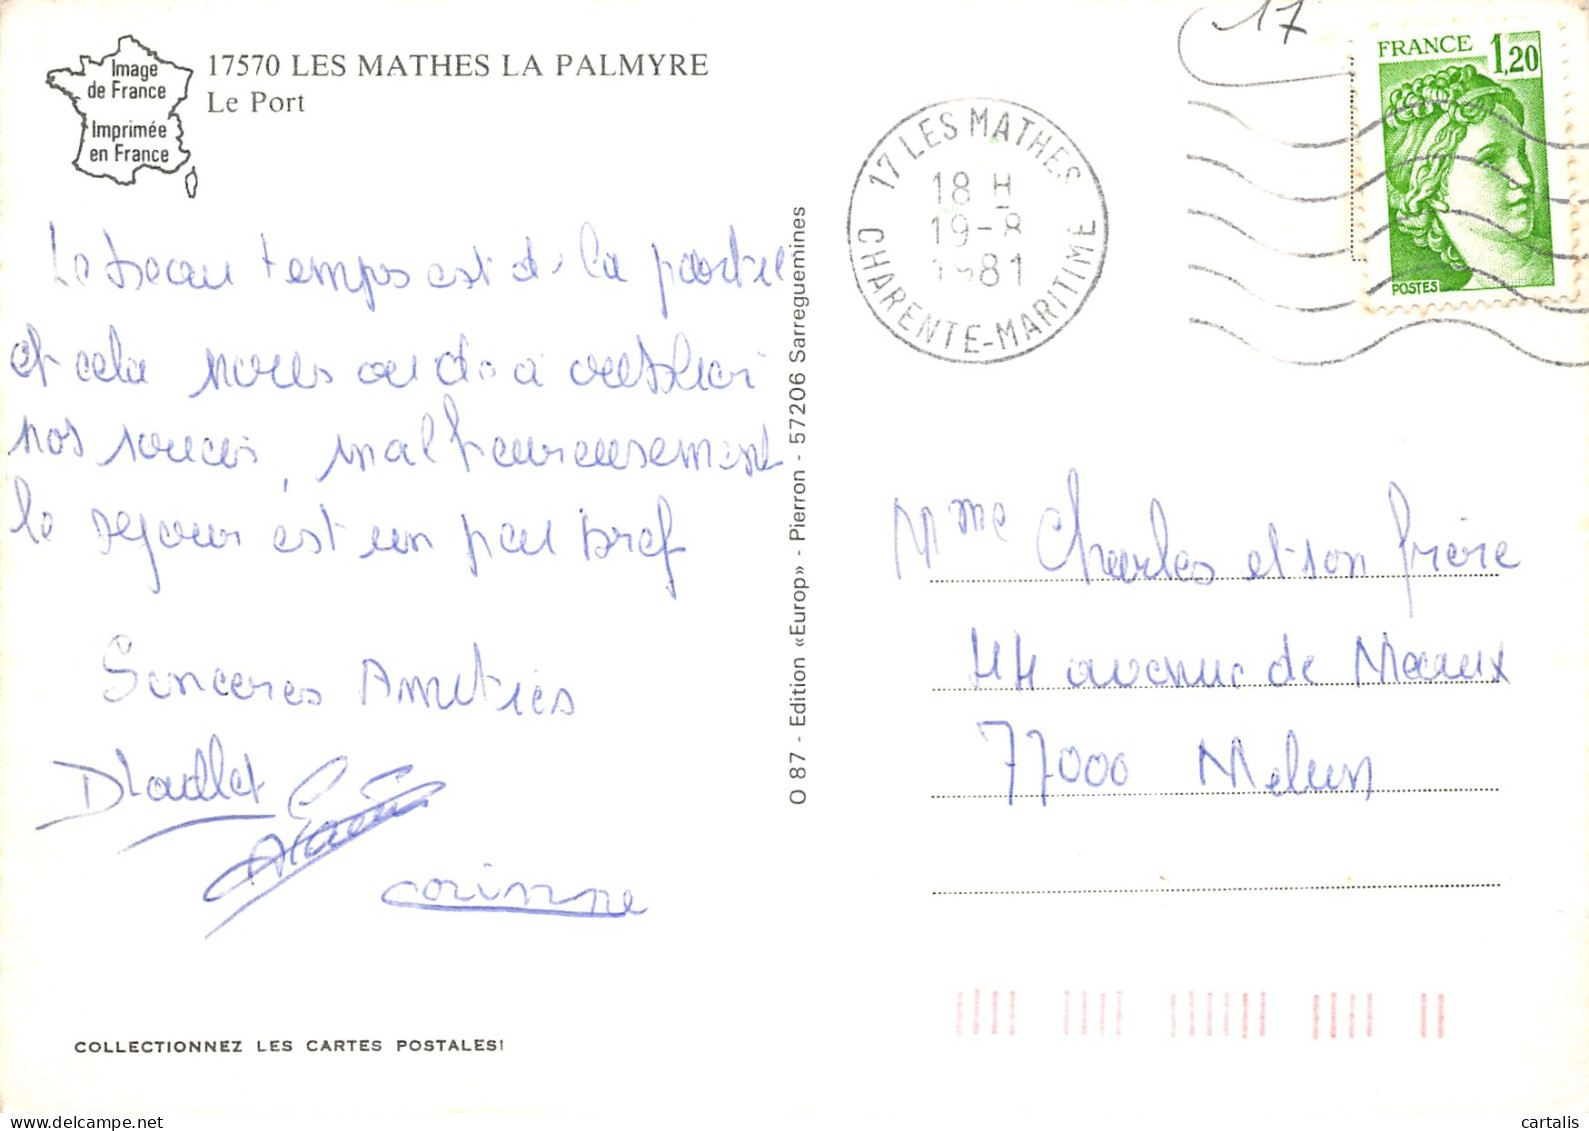 Image
de France
Imprimée
en France
17570 LES MATHES LA PALMYRE
Le Port
17
FRANCE 1,20
POSTES
17 LES MATHES
18 H
19-8
1981
CHARENTE-MARITIME
Le beau temps est de la partie
et cela nous aide à oublier
nos soucis, malheureusement
le séjour est un peu bref
Sincères Amitiés
Alain
corinne
O 87 - Edition «Europ» - Pierron - 57206 Sarreguemines
Mme Charles et son frère
44 avenue de Meaux
77000 Melun
COLLECTIONNEZ LES CARTES POSTALES!
cartalis